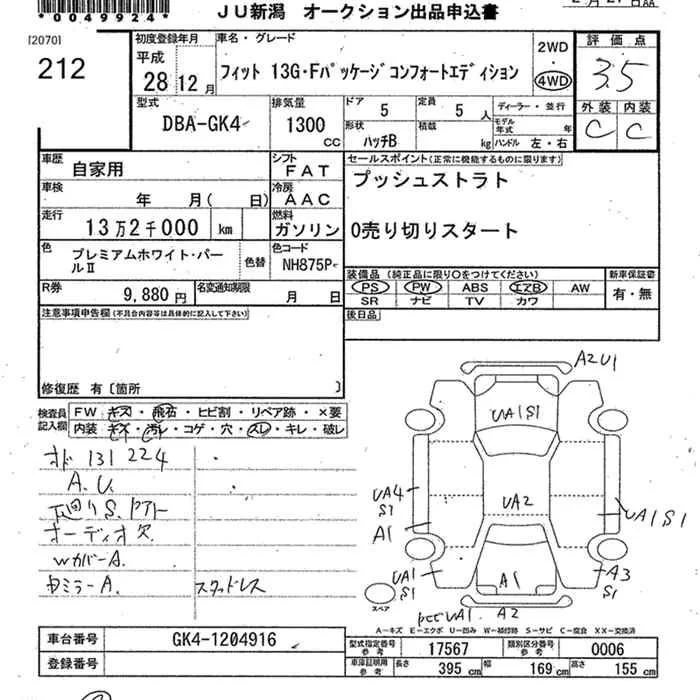 *0049924*
JU新潟 オークション出品申込書
[2070]
212
初度登録年月
平成
28年12月
車名・グレード
フィット 13G・Fパッケージ コンフォートエディション
2WD
・
4WD
評価点
3.5
外装 内装
C C
型式
DBA-GK4
排気量
1300
CC
ドア 5
定員 5 人
形状 ハッチB
積載 kg
ディーラー・並行
モデル年式 年
ハンドル 左・右
車歴
自家用
シフト
FAT
車検
年 月( 日)
冷房
AAC
走行
13万2千000 km
燃料
ガソリン
色
プレミアムホワイト・パールⅡ
色替
色コード
NH875P
R券
9,880円
名変通知期限
月 日
セールスポイント(正常に機能するものに限ります)
プッシュストラト
0売り切りスタート
装備品(純正品に限り○をつけてください)
PS PW ABS エアB AW
SR ナビ TV カワ
新車保証書
有・無
後日品
注意事項申告欄(不具合内容等は具体的に記入して下さい)
修復歴 有〔箇所 〕
検査員記入欄
FW キズ・飛石・ヒビ割・リペア跡・×要
内装 キズ・汚レ・コゲ・穴・スレ・キレ・破レ
オド 131224
A.U.
下回りS.
オーディオ欠
WカバーA.
ミラーA.
スタッドレス
A2U1
UA1S1
UA4
S1
A1
UA2
UA1S1
UA1
S1
A1
A3
S1
UA1.
A2
スペア
A-キズ E-エクボ U-凹み W-補修跡 S-サビ C-腐食 XX-交換済
車台番号
GK4-1204916
登録番号
型式指定番号 参考
17567
類別区分番号 参考
0006
車庫証明用 参考
長さ 395 cm
幅 169 cm
高さ 155 cm